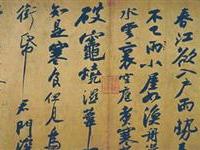 春江欲入戶雨勢
不已雨小屋如漁舟
水雲裏空庖煮寒
破竈燒濕葦
知是寒食但見烏
銜帋君門深